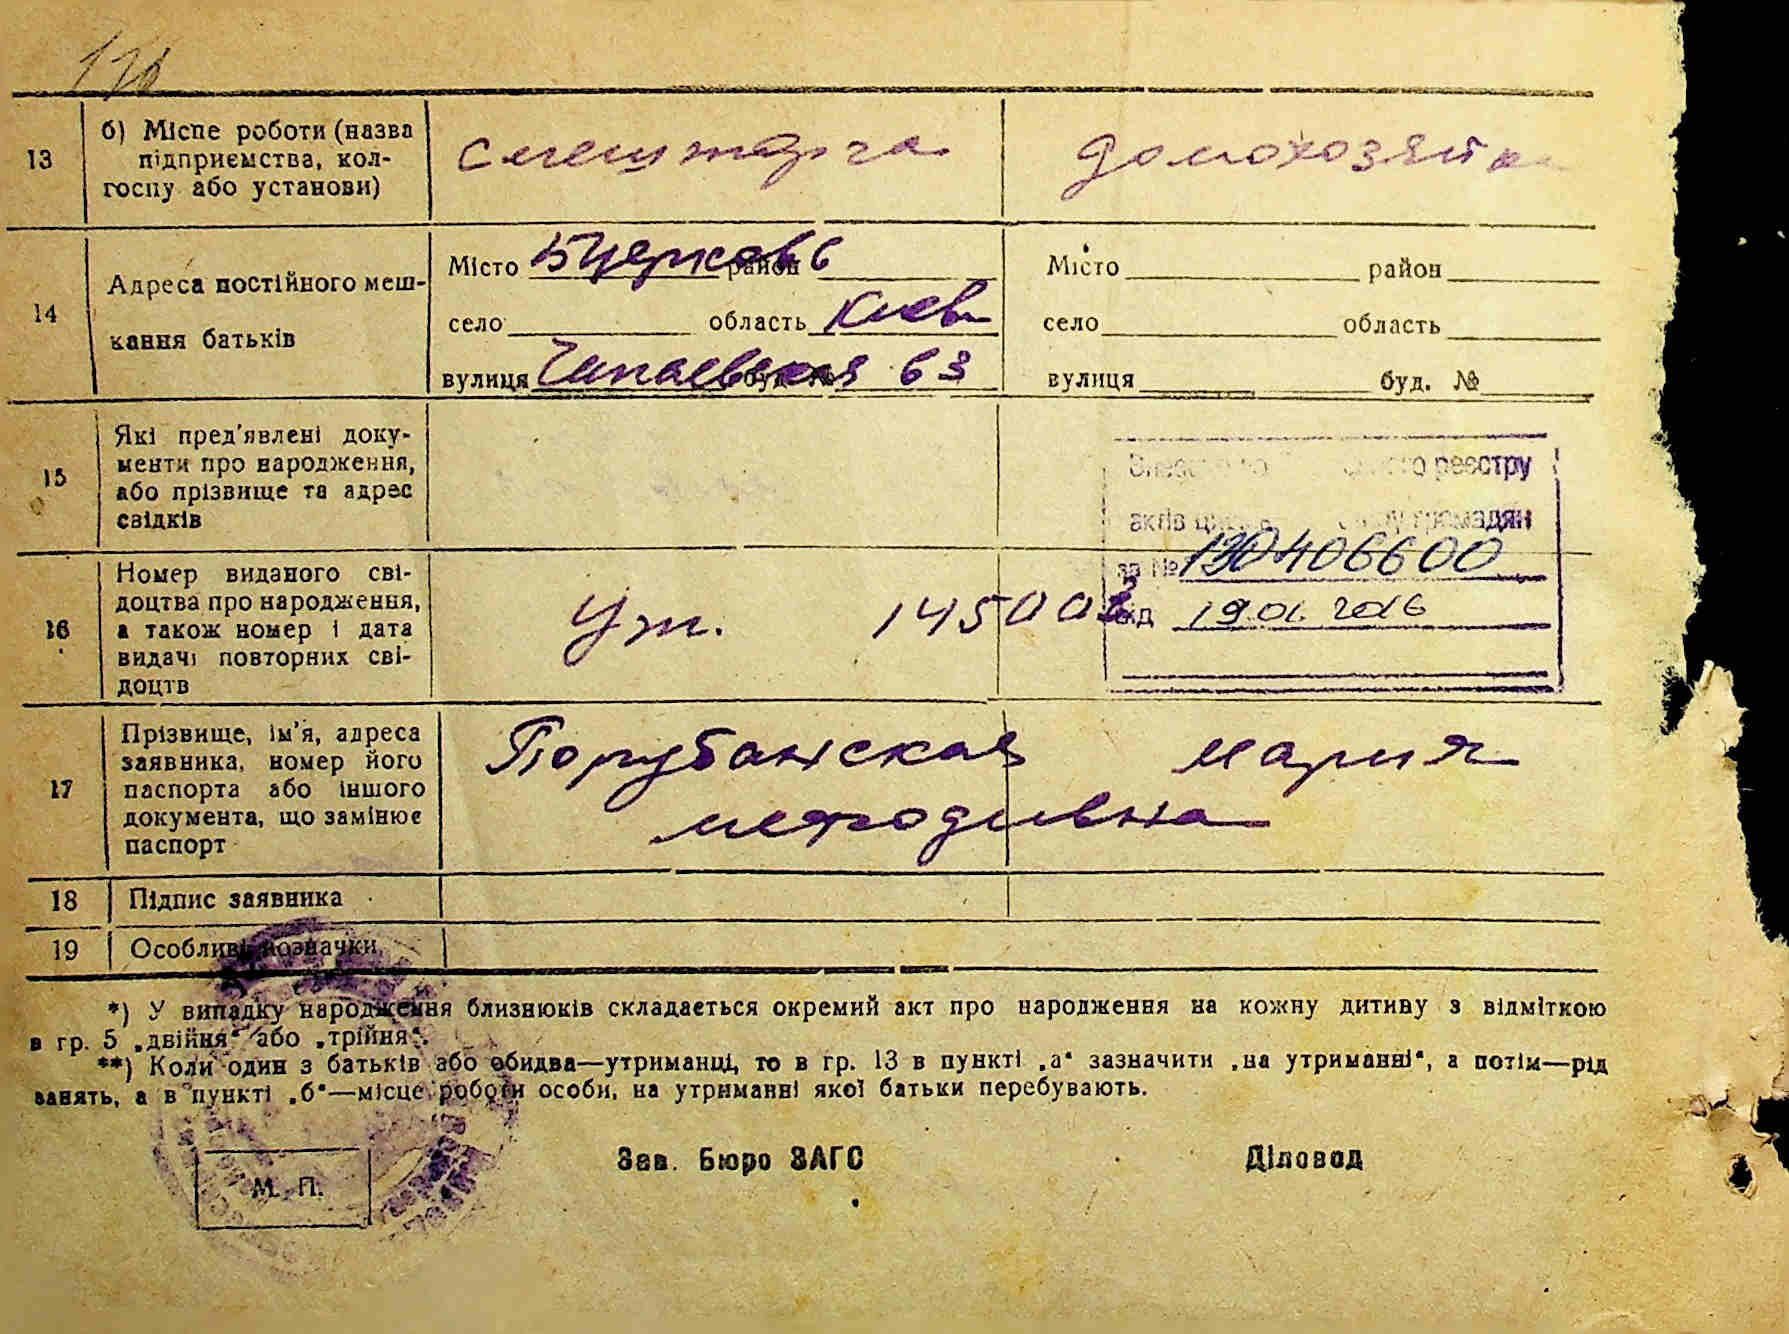 13
б) Місце роботи (назва
підприємства, кол-
госпу або установи)
смешторга
домохозяйка
14
Адреса постійного меш-
кання батьків
Місто Б Церковь район
село область Киев
вулиця Чапаевская буд. № 63
Місто район
село область
вулиця буд. №
15
Які пред'явлені доку-
менти про народження,
або прізвище та адрес
свідків
реєстру
актів громадян
за № 130406600
від 19.01.2016
16
Номер виданого сві-
доцтва про народження,
а також номер і дата
видачі повторних сві-
доцтв
Уж.
17
Прізвище, ім'я, адреса
заявника, номер його
паспорта або іншого
документа, що замінює
паспорт
Порубанская Мария
Мефодивна
18 Підпис заявника
19 Особливі позначки
*) У випадку народження близнюків складається окремий акт про народження на кожну дитину з відміткою
в гр. 5 „двійня“ або „трійня“.
**) Коли один з батьків або обидва—утриманці, то в гр. 13 в пункті „а“ зазначити „на утриманні“, а потім—рід
занять, а в пункті „б“—місце роботи особи, на утриманні якої батьки перебувають.
Зав. Бюро ЗАГС
Діловод
М. П.